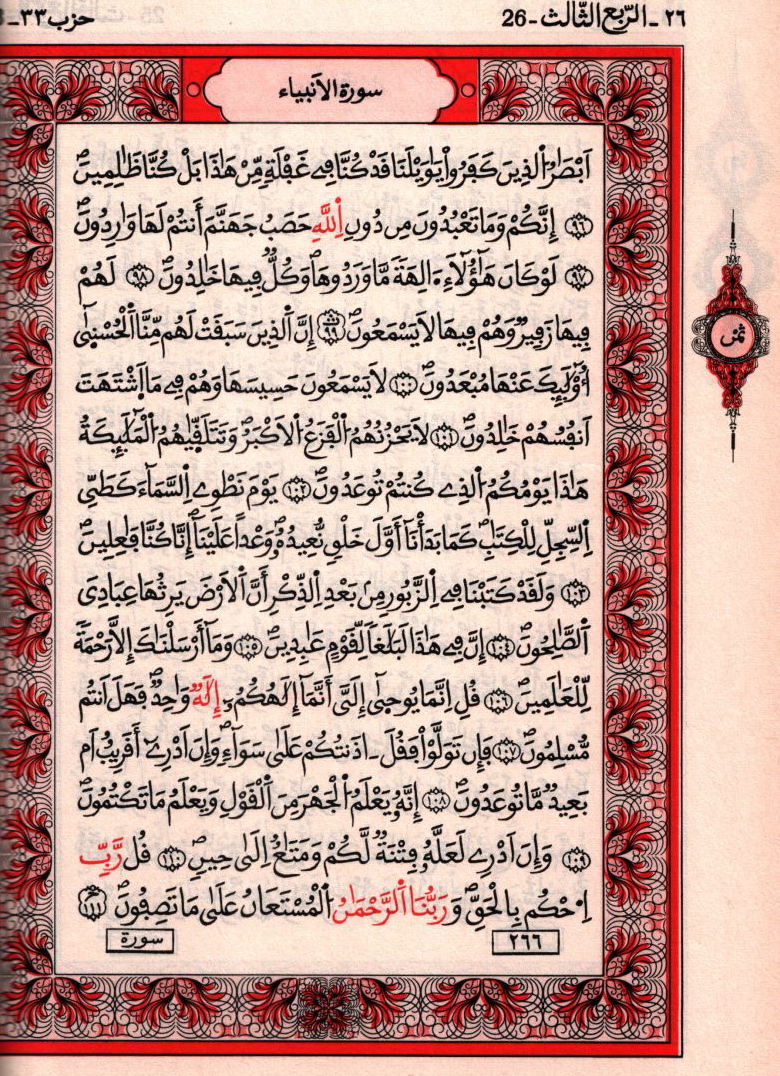 ٢٦ - الرّبع الثّالث - 26
حزب ٣٣ -
سورة الأنبياء
أَبْصَٰرُ الذِينَ كَفَرُواْ يَٰوَيْلَنَا قَدْ كُنَّا فِے غَفْلَةٍ مِّنْ هَٰذَا بَلْ كُنَّا ظَٰلِمِينَ
٩٦ إِنَّكُمْ وَمَا تَعْبُدُونَ مِن دُونِ اِللَّهِ حَصَبُ جَهَنَّمَ أَنتُمْ لَهَا وَٰرِدُونَ
٩٧ لَوْ كَانَ هَٰٓؤُلَآءِ ءَالِهَةً مَّا وَرَدُوهَا وَكُلٌّ فِيهَا خَٰلِدُونَ ٩٨ لَهُمْ
فِيهَا زَفِيرٌ وَهُمْ فِيهَا لَا يَسْمَعُونَ ٩٩ إِنَّ الَذِينَ سَبَقَتْ لَهُم مِّنَّا اَلْحُسْنَىٰٓ
أُوْلَٰٓئِكَ عَنْهَا مُبْعَدُونَ ١٠٠ لَا يَسْمَعُونَ حَسِيسَهَا وَهُمْ فِے مَا اَشْتَهَتَ
اَنفُسُهُمْ خَٰلِدُونَ ١٠١ لَا يَحْزُنُهُمُ الْفَزَعُ الْأَكْبَرُ وَتَتَلَقَّىٰهُمُ الْمَلَٰٓئِكَةُ
هَٰذَا يَوْمُكُمُ الذِے كُنتُمْ تُوعَدُونَ ١٠٢ يَوْمَ نَطْوِے اِلسَّمَآءَ كَطَيِّ
اِلسِّجِلِّ لِلْكِتَٰبِ كَمَا بَدَأْنَآ أَوَّلَ خَلْقٍ نُّعِيدُهُۥ وَعْداً عَلَيْنَآ إِنَّا كُنَّا فَٰعِلِينَ
١٠٣ وَلَقَدْ كَتَبْنَا فِے اِلزَّبُورِ مِنۢ بَعْدِ اِلذِّكْرِ أَنَّ اَلَارْضَ يَرِثُهَا عِبَادِىَ
اَلصَّٰلِحُونَ ١٠٤ إِنَّ فِے هَٰذَا لَبَلَٰغاً لِّقَوْمٍ عَٰبِدِينَ ١٠٥ وَمَآ أَرْسَلْنَٰكَ إِلَّا رَحْمَةً
لِّلْعَٰلَمِينَ ١٠٦ قُلِ اِنَّمَا يُوحَىٰٓ إِلَيَّ أَنَّمَآ إِلَٰهُكُمُۥٓ إِلَٰهٌ وَٰحِدٌ فَهَلَ اَنتُم
مُّسْلِمُونَ ١٠٧ فَإِن تَوَلَّوْاْ فَقُلَ ـ اذَنتُكُمْ عَلَىٰ سَوَآءٍ وَإِنَ اَدْرِےٓ أَقَرِيبٌ اَم
بَعِيدٌ مَّا تُوعَدُونَ ١٠٨ إِنَّهُۥ يَعْلَمُ الْجَهْرَ مِنَ اَلْقَوْلِ وَيَعْلَمُ مَا تَكْتُمُونَ
١٠٩ وَإِنَ اَدْرِے لَعَلَّهُۥ فِتْنَةٌ لَّكُمْ وَمَتَٰعٌ اِلَىٰ حِينٍ ١١٠ قُل رَّبِّ
اِحْكُم بِالْحَقِّ وَرَبُّنَا اَلرَّحْمَٰنُ اُلْمُسْتَعَانُ عَلَىٰ مَا تَصِفُونَ ١١١
٢٦٦
سورة
ثمن